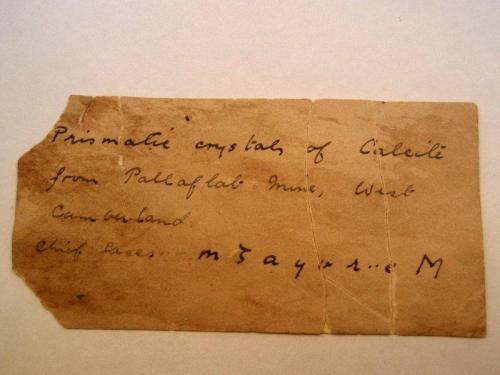 Prismatic crystals of Calcite
from Pallaflat Mine, West
Cumberland.
Chief faces m ζ a y v r e M